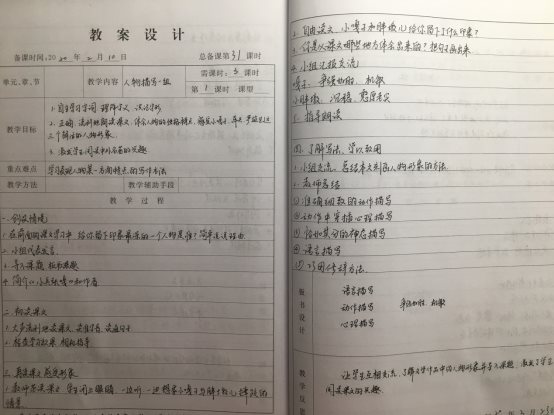 教案设计
备课时间:20 年2月10日 总备课第31课时
单元、章、节 教学内容 人物描写一组 需课时:3课时
第1课时 课型
教学目标
1.自主学习字词,理解字义,识记字形
2.正确、流利地朗读课文,体会人物的性格特点,
三个鲜活的人物形象。
3.激发学生阅读中外名著的兴趣
重点难点 学习表现人物某一方面特点的写作方法
教学方法 教学辅助手段
教学过程
一.创设情境
1.在前面的课文学习中,给你留下印象最深的一个人物是谁?简单说说理由.
2.小组代表发言.
3.导入课题,板书课题
4.简介《小兵张嘎》和作者
二.初读课文
1.大声流利地读课文,读准字音,读通句子
2.检查学习效果,相机指导
三.再读课文,感受形象
1.教师范读课文,学生闭上眼睛,一边听一边想象小嘎子与胖墩儿摔跤的
情景
2.自由读文,小嘎子和胖墩儿给你留下了什么印象?
3.你是从课文哪些地方体会出来的?把句子画出来.
4.小组汇报交流
嘎子:争强好胜、机敏
小胖墩:沉稳、憨厚老实
5.指导朗读
四.了解写法,学以致用
1.小组交流,总结本文刻画人物形象的方法.
2.教师总结
①准确细致的动作描写
②动作中穿插心理描写
③恰如其分的神态描写
④语言描写
⑤巧用修辞方法.
板书设计
语言描写
动作描写 争强好胜、机敏
心理描写
教学反思
让学生互相交流,了解文学作品中的人物形象并导入课题,激发了学生
阅读课文的兴趣.